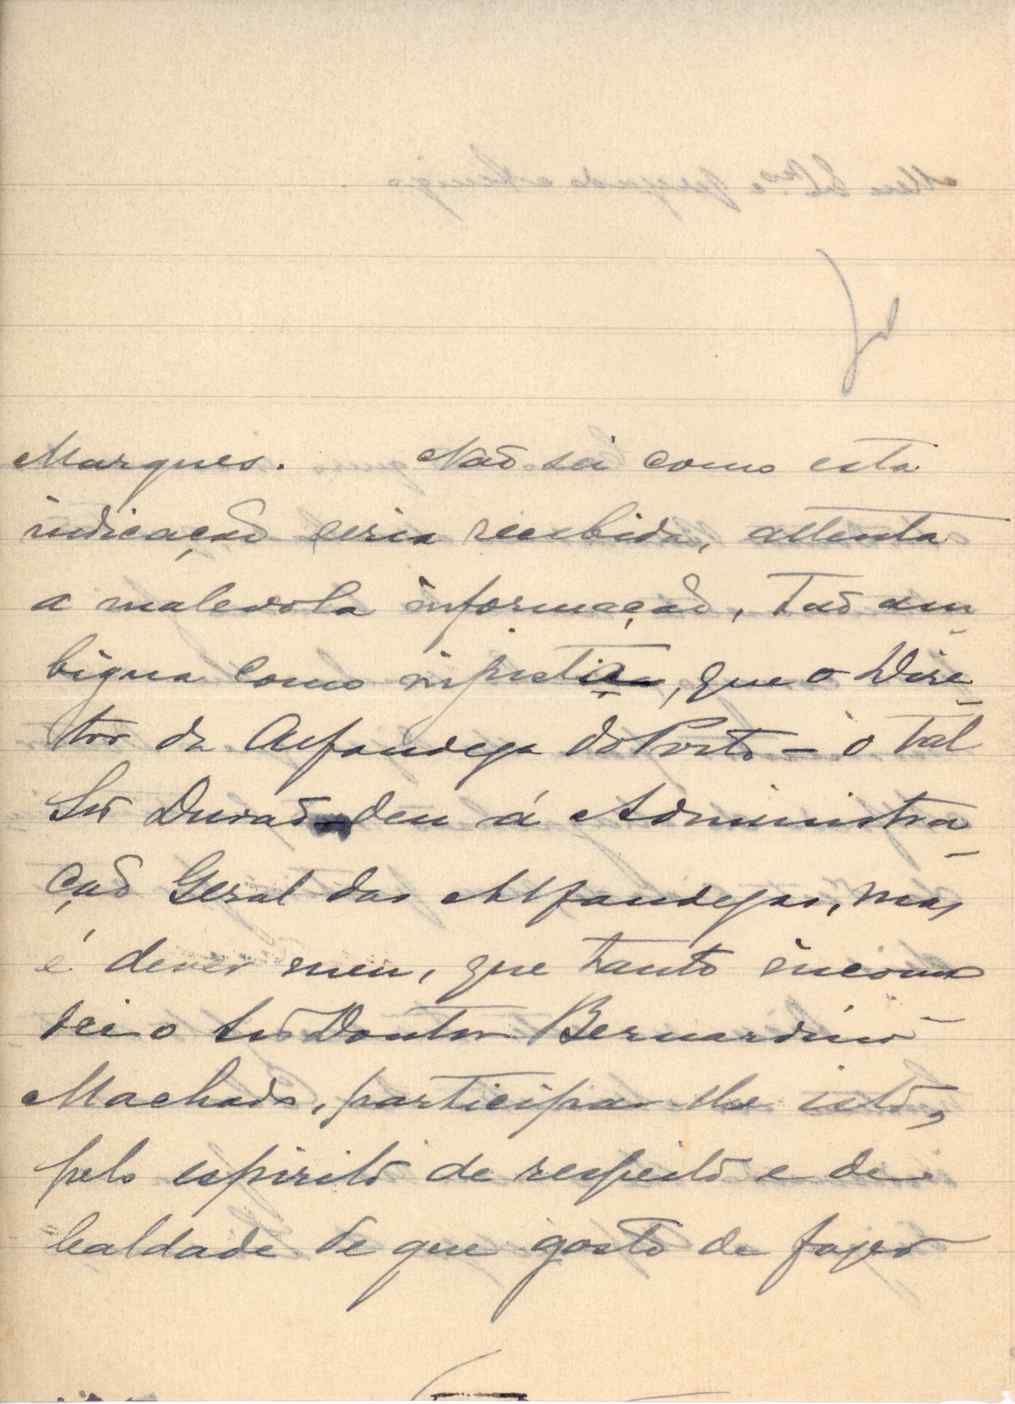 Marques. Não sei como esta
indicação seria recebida, attenta
a malevola informação, tão am
bigua como injusta, que o Dire-
tor da Alfandega do Porto - o tal
Snr Durão - deu á Administra-
ção Geral das Alfandegas, mas
é dever meu, que tanto incomo
dei o Snr Doutor Bernardino
Machado, participar lhe isto,
pelo espirito de respeito e de
lealdade de que gosto de fazer